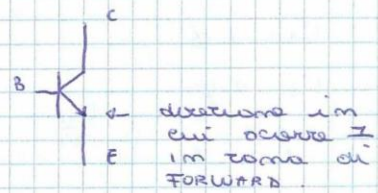 C
B
← direzione in
cui scorre I
E
in zona di
FORWARD.